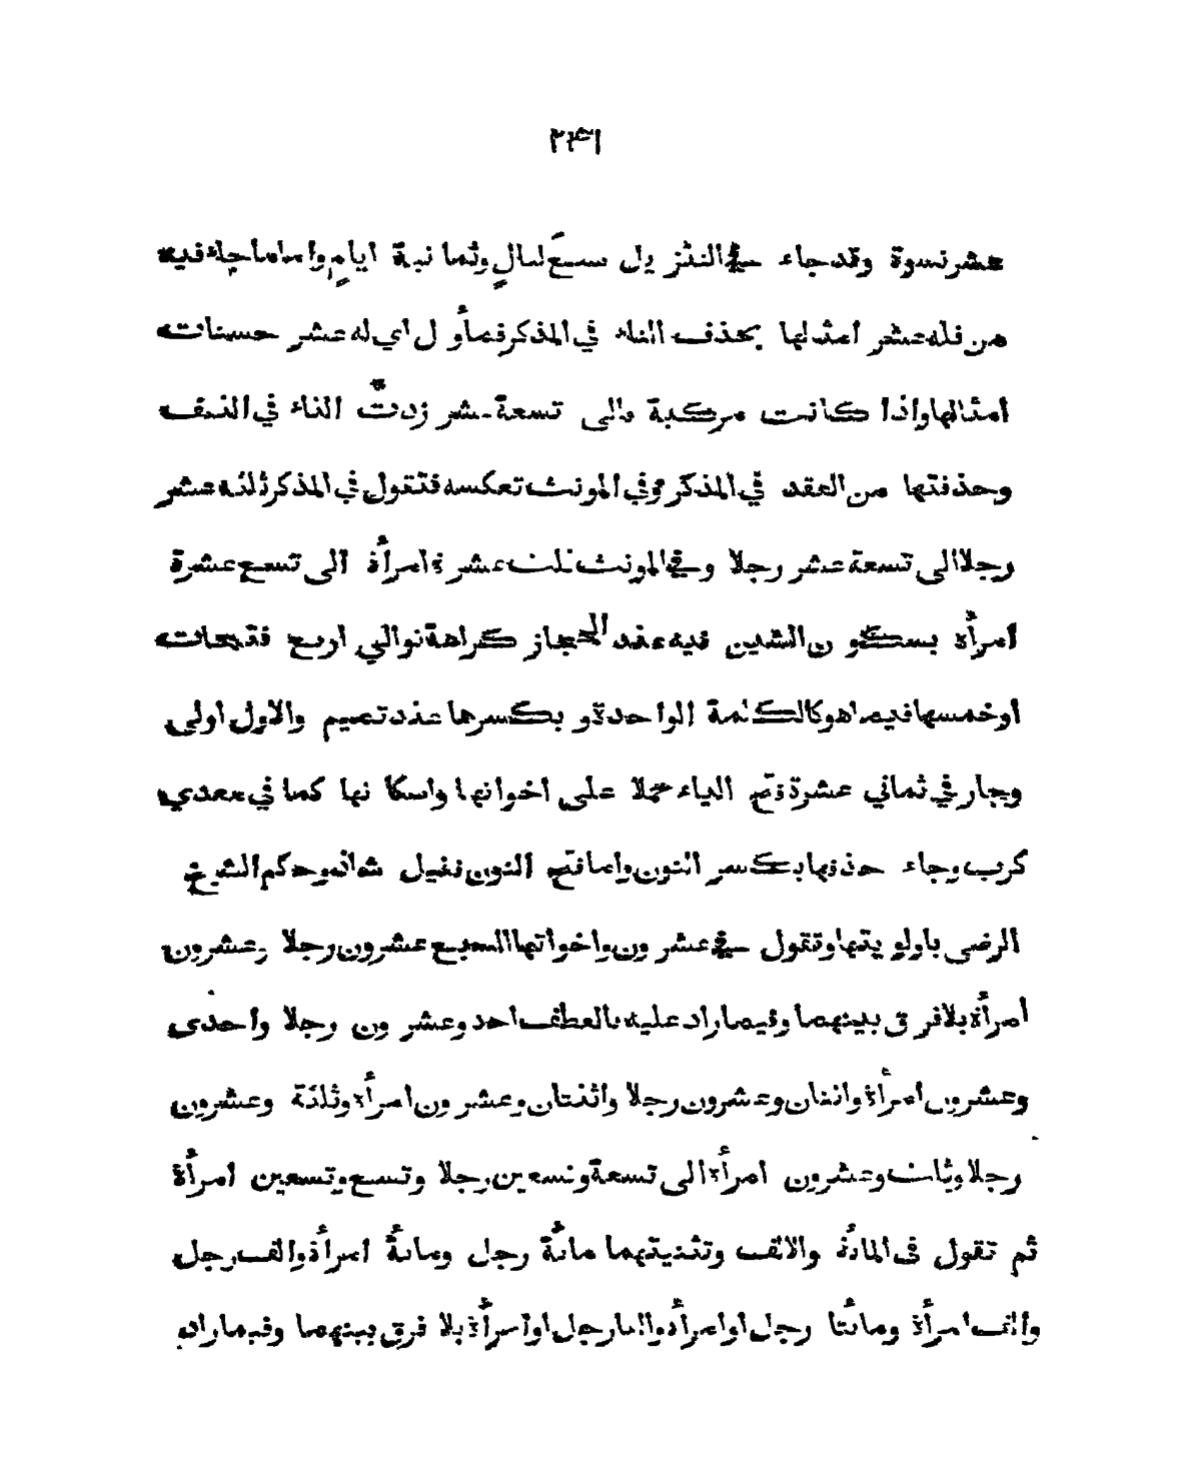 ٢٣١
عشر نسوة وقد جاء في التنزيل سبعَ ليالٍ وثمانية ايامٍ واما ما جاء فيه
من فله عشر امثالها بحذف التاء في المذكر فمأول اي له عشر حسنات
امثالها واذا كانت مركبة الى تسعة عشر زدتَّ التاء في النيف
وحذفتها من العقد في المذكر وفي المونث تعكسه فتقول في المذكر ثلثة عشر
رجلا الى تسعة عشر رجلا وفي المونث ثلث عشرة امرأة الى تسع عشرة
امرأة بسكون الشين فيه عند الحجاز كراهة توالي اربع فتحات
او خمسها فيما هو كالكلمة الواحدة و بكسرها عند تميم والاول اولى
وجاز في ثماني عشرة فتح الياء حملا على اخواتها واسكانها كما في معدي
كرب وجاء حذفها بكسر النون واما فتح النون فقيل شاذ وحكم الشيخ
الرضى باولويتها وتقول في عشرون واخواتها السبع عشرون رجلا وعشرون
امرأة بلا فرق بينهما وفيما زاد عليه بالعطف احد وعشرون رجلا واحدى
وعشرون امرأة واثنان وعشرون رجلا واثنتان وعشرون امرأة وثلثة وعشرون
رجلا وثلث وعشرون امرأة الى تسعة وتسعين رجلا وتسع وتسعين امرأة
ثم تقول فى المائة والالف وتثنيتهما مائة رجل ومائة امرأة والف رجل
والف امرأة ومائتا رجل او امرأة والفا رجل او امرأة بلا فرق بينهما وفيما زاد